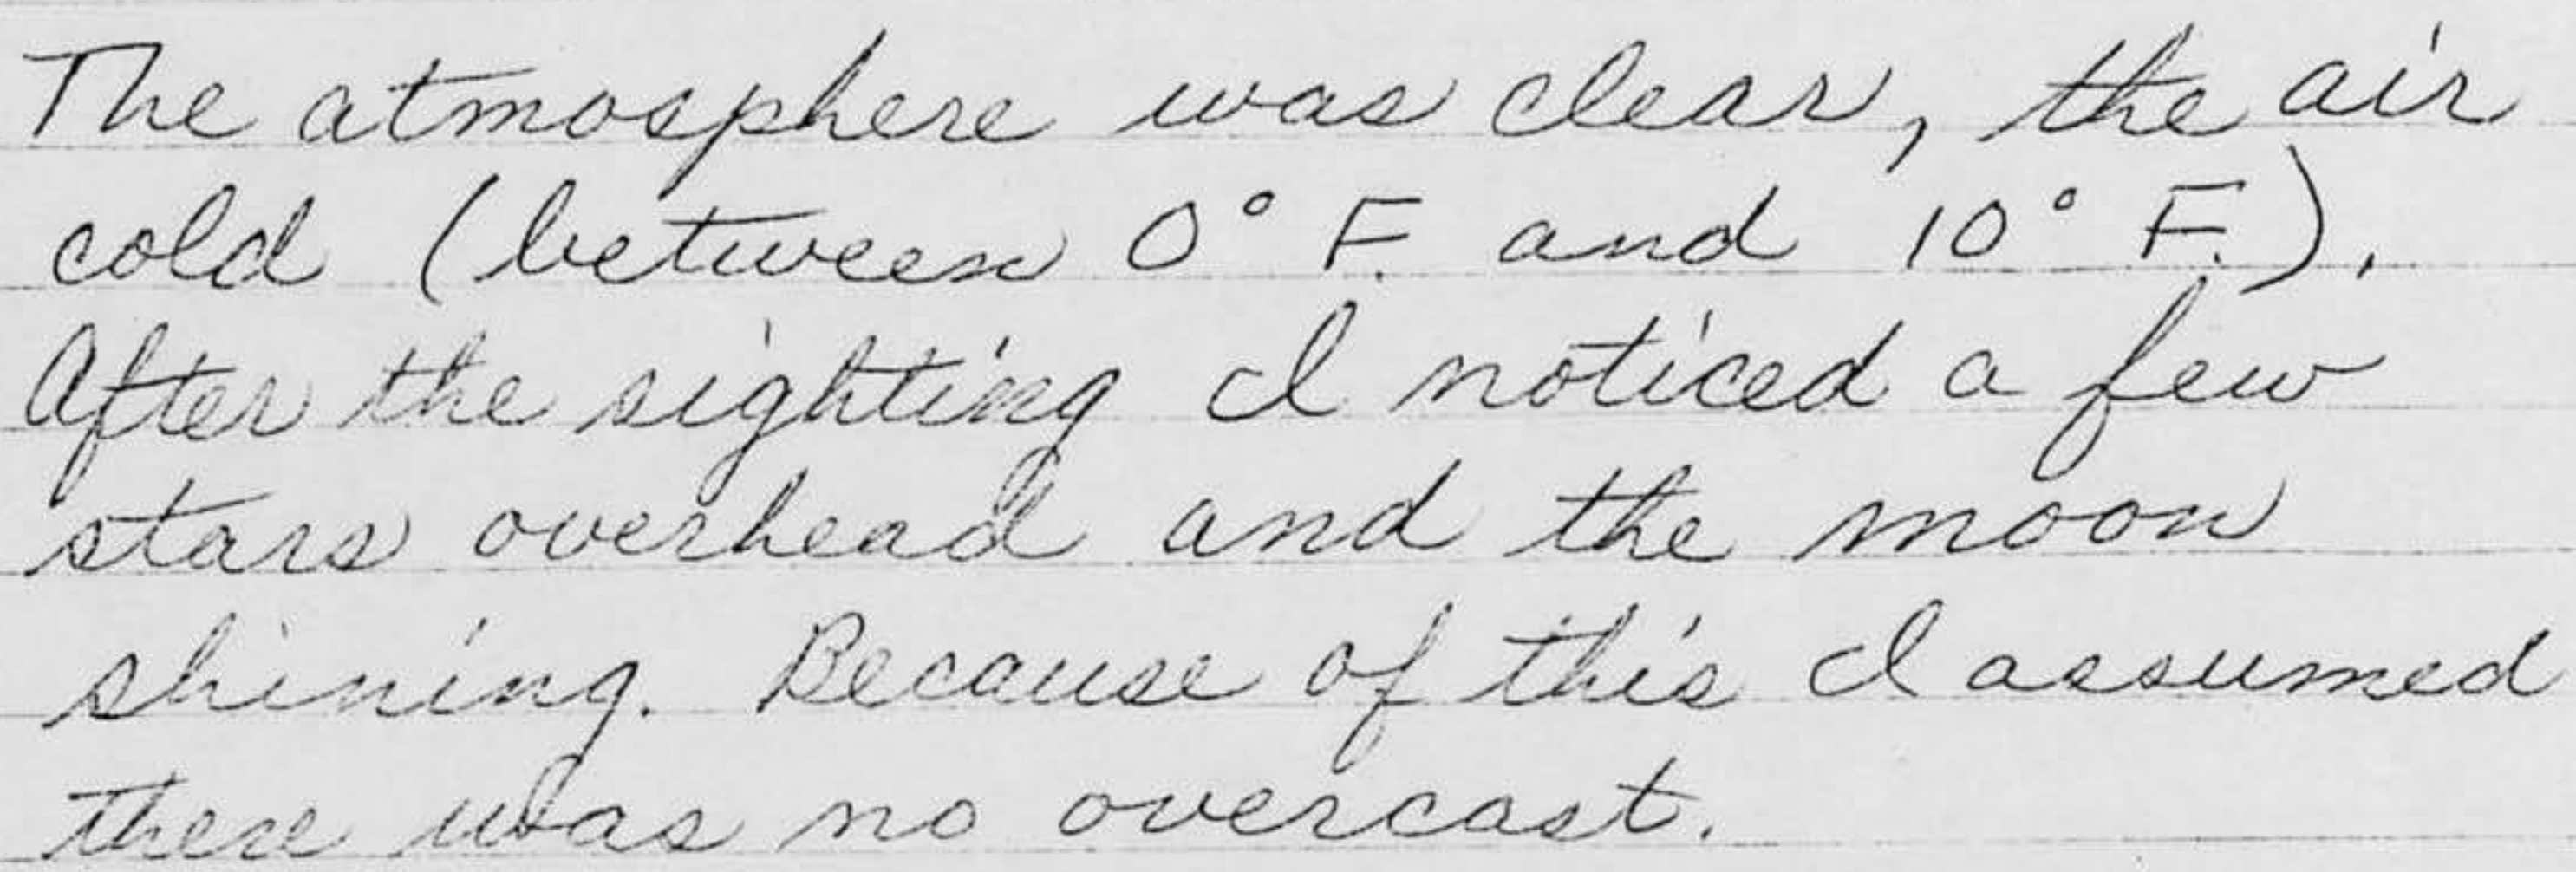 The atmosphere was clear, the air
cold (between 0° F. and 10° F.).
After the sighting I noticed a few
stars overhead and the moon
shining. Because of this I assumed
there was no overcast.